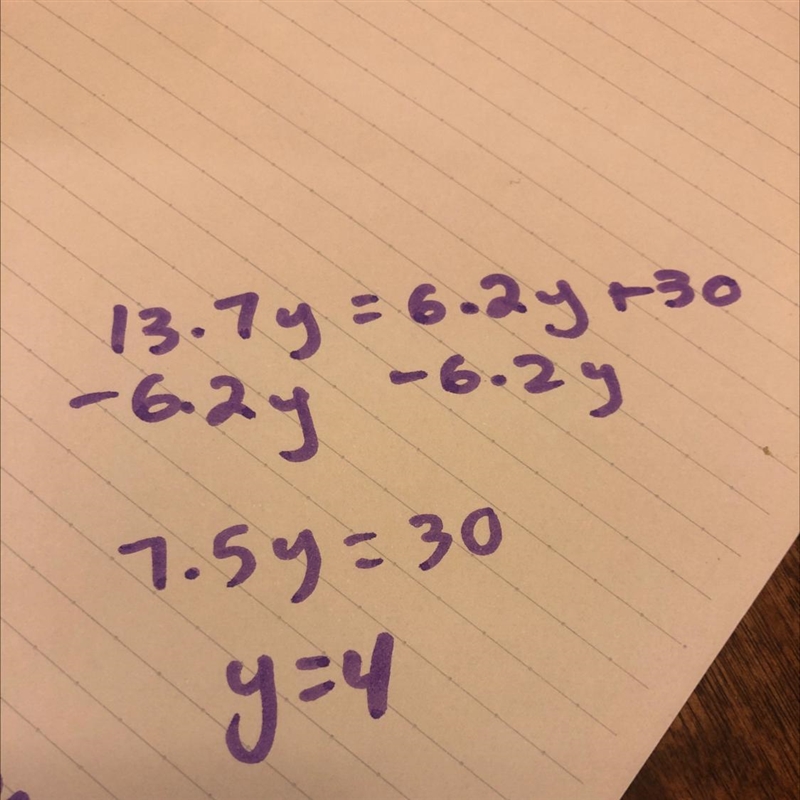 13.7y = 6.2y + 30
-6.2y -6.2y
7.5y = 30
y = 4